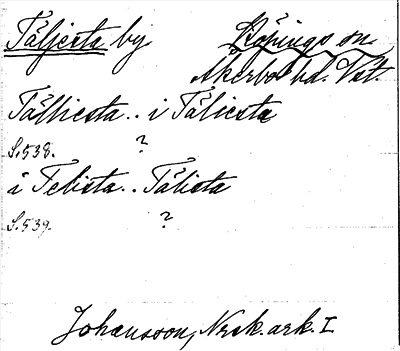 Täljesta by Köpings sn.
Åkerbo hd. Vst.
Tälliesta.. i Täliesta
S. 538. ?
i Telista.. Tälista
S. 539. ?
Johansson, Nrsk. ark. I